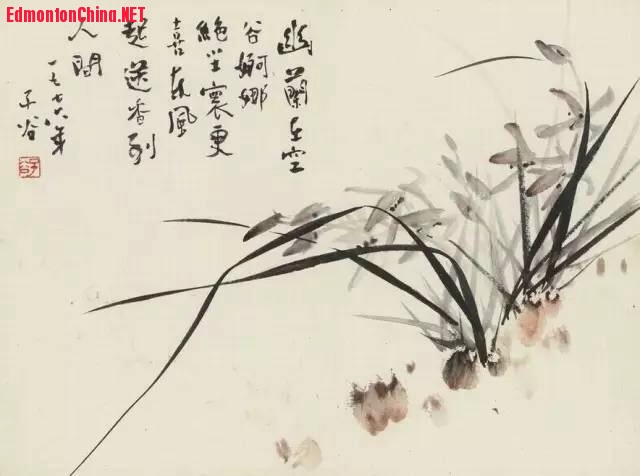 EdmontonChina.NET
幽蘭在空
谷婀娜
絕塵寰更
喜東風
起送香到
人間
子谷